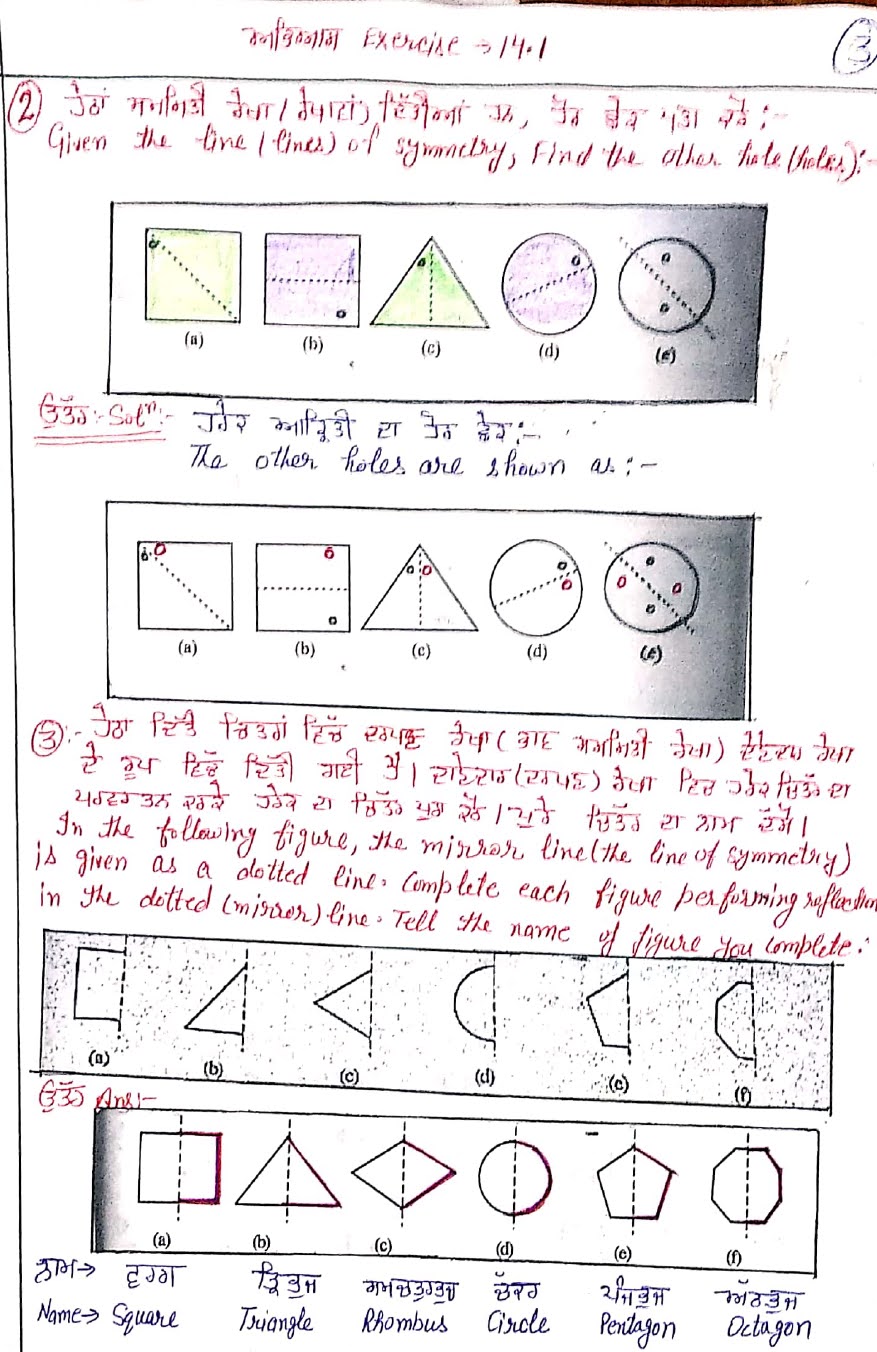 ਅਭਿਆਸ Exercise → 14.1
3
② ਹੇਠਾਂ ਸਮਮਿਤੀ ਰੇਖਾ / ਰੇਖਾਵਾਂ) ਦਿੱਤੀਆਂ ਹਨ, ਹੋਰ ਛੇਕ ਪਤਾ ਕਰੋ :-
Given the line (lines) of symmetry, Find the other hole (holes):-
(a) (b) (c) (d) (e)
ਉੱਤਰ:- Solⁿ:- ਹਰੇਕ ਆਕ੍ਰਿਤੀ ਦਾ ਹੋਰ ਛੇਕ:-
The other holes are shown as :-
(a) (b) (c) (d) (e)
③:- ਹੇਠਾਂ ਦਿੱਤੇ ਚਿਤਰਾਂ ਵਿੱਚ ਦਰਪਣ ਰੇਖਾ (ਭਾਵ ਸਮਮਿਤੀ ਰੇਖਾ) ਦਾਣੇਦਾਰ ਰੇਖਾ
ਦੇ ਰੂਪ ਵਿੱਚ ਦਿੱਤੀ ਗਈ ਹੈ। ਦਾਣੇਦਾਰ (ਦਰਪਣ) ਰੇਖਾ ਵਿਚ ਹਰੇਕ ਚਿੱਤਰ ਦਾ
ਪਰਵਰਤਨ ਕਰਕੇ ਹਰੇਕ ਦਾ ਚਿੱਤਰ ਪੂਰਾ ਕਰੋ। ਪੂਰੇ ਚਿੱਤਰ ਦਾ ਨਾਮ ਦੱਸੋ।
In the following figure, the mirror line (the line of symmetry)
is given as a dotted line. Complete each figure performing reflection
in the dotted (mirror) line. Tell the name of figure you complete:
(a) (b) (c) (d) (e) (f)
ਉੱਤਰ Ans:-
(a) (b) (c) (d) (e) (f)
ਨਾਮ→ ਵਰਗ ਤ੍ਰਿਭੁਜ ਸਮਚਤੁਰਭੁਜ ਚੱਕਰ ਪੰਜਭੁਜ ਅੱਠਭੁਜ
Name→ Square Triangle Rhombus Circle Pentagon Octagon